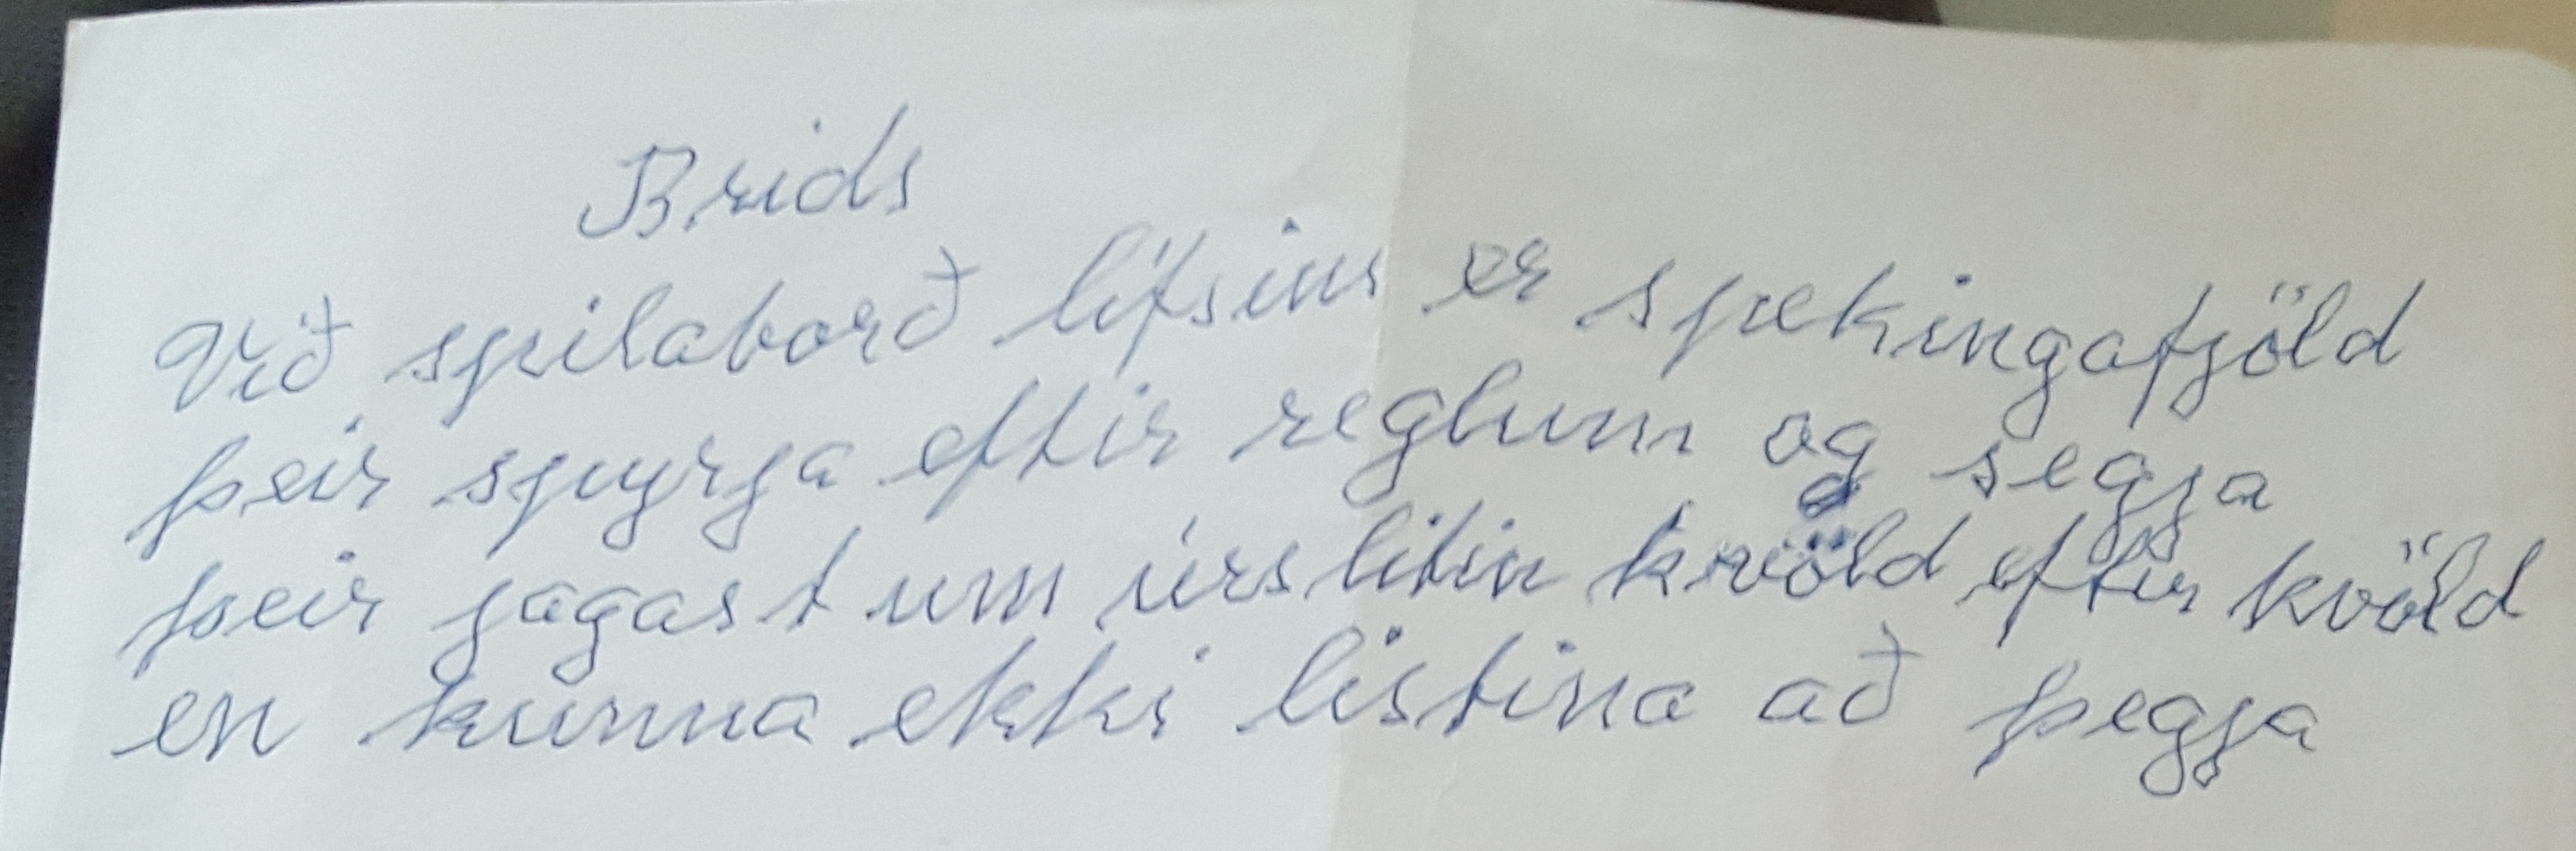 Brids
Við spilaborð lífsins er spekingafjöld
þeir spyrja eftir reglum og segja
þeir jagast um úrslitin kvöld eftir kvöld
en kunna ekki listina að þegja